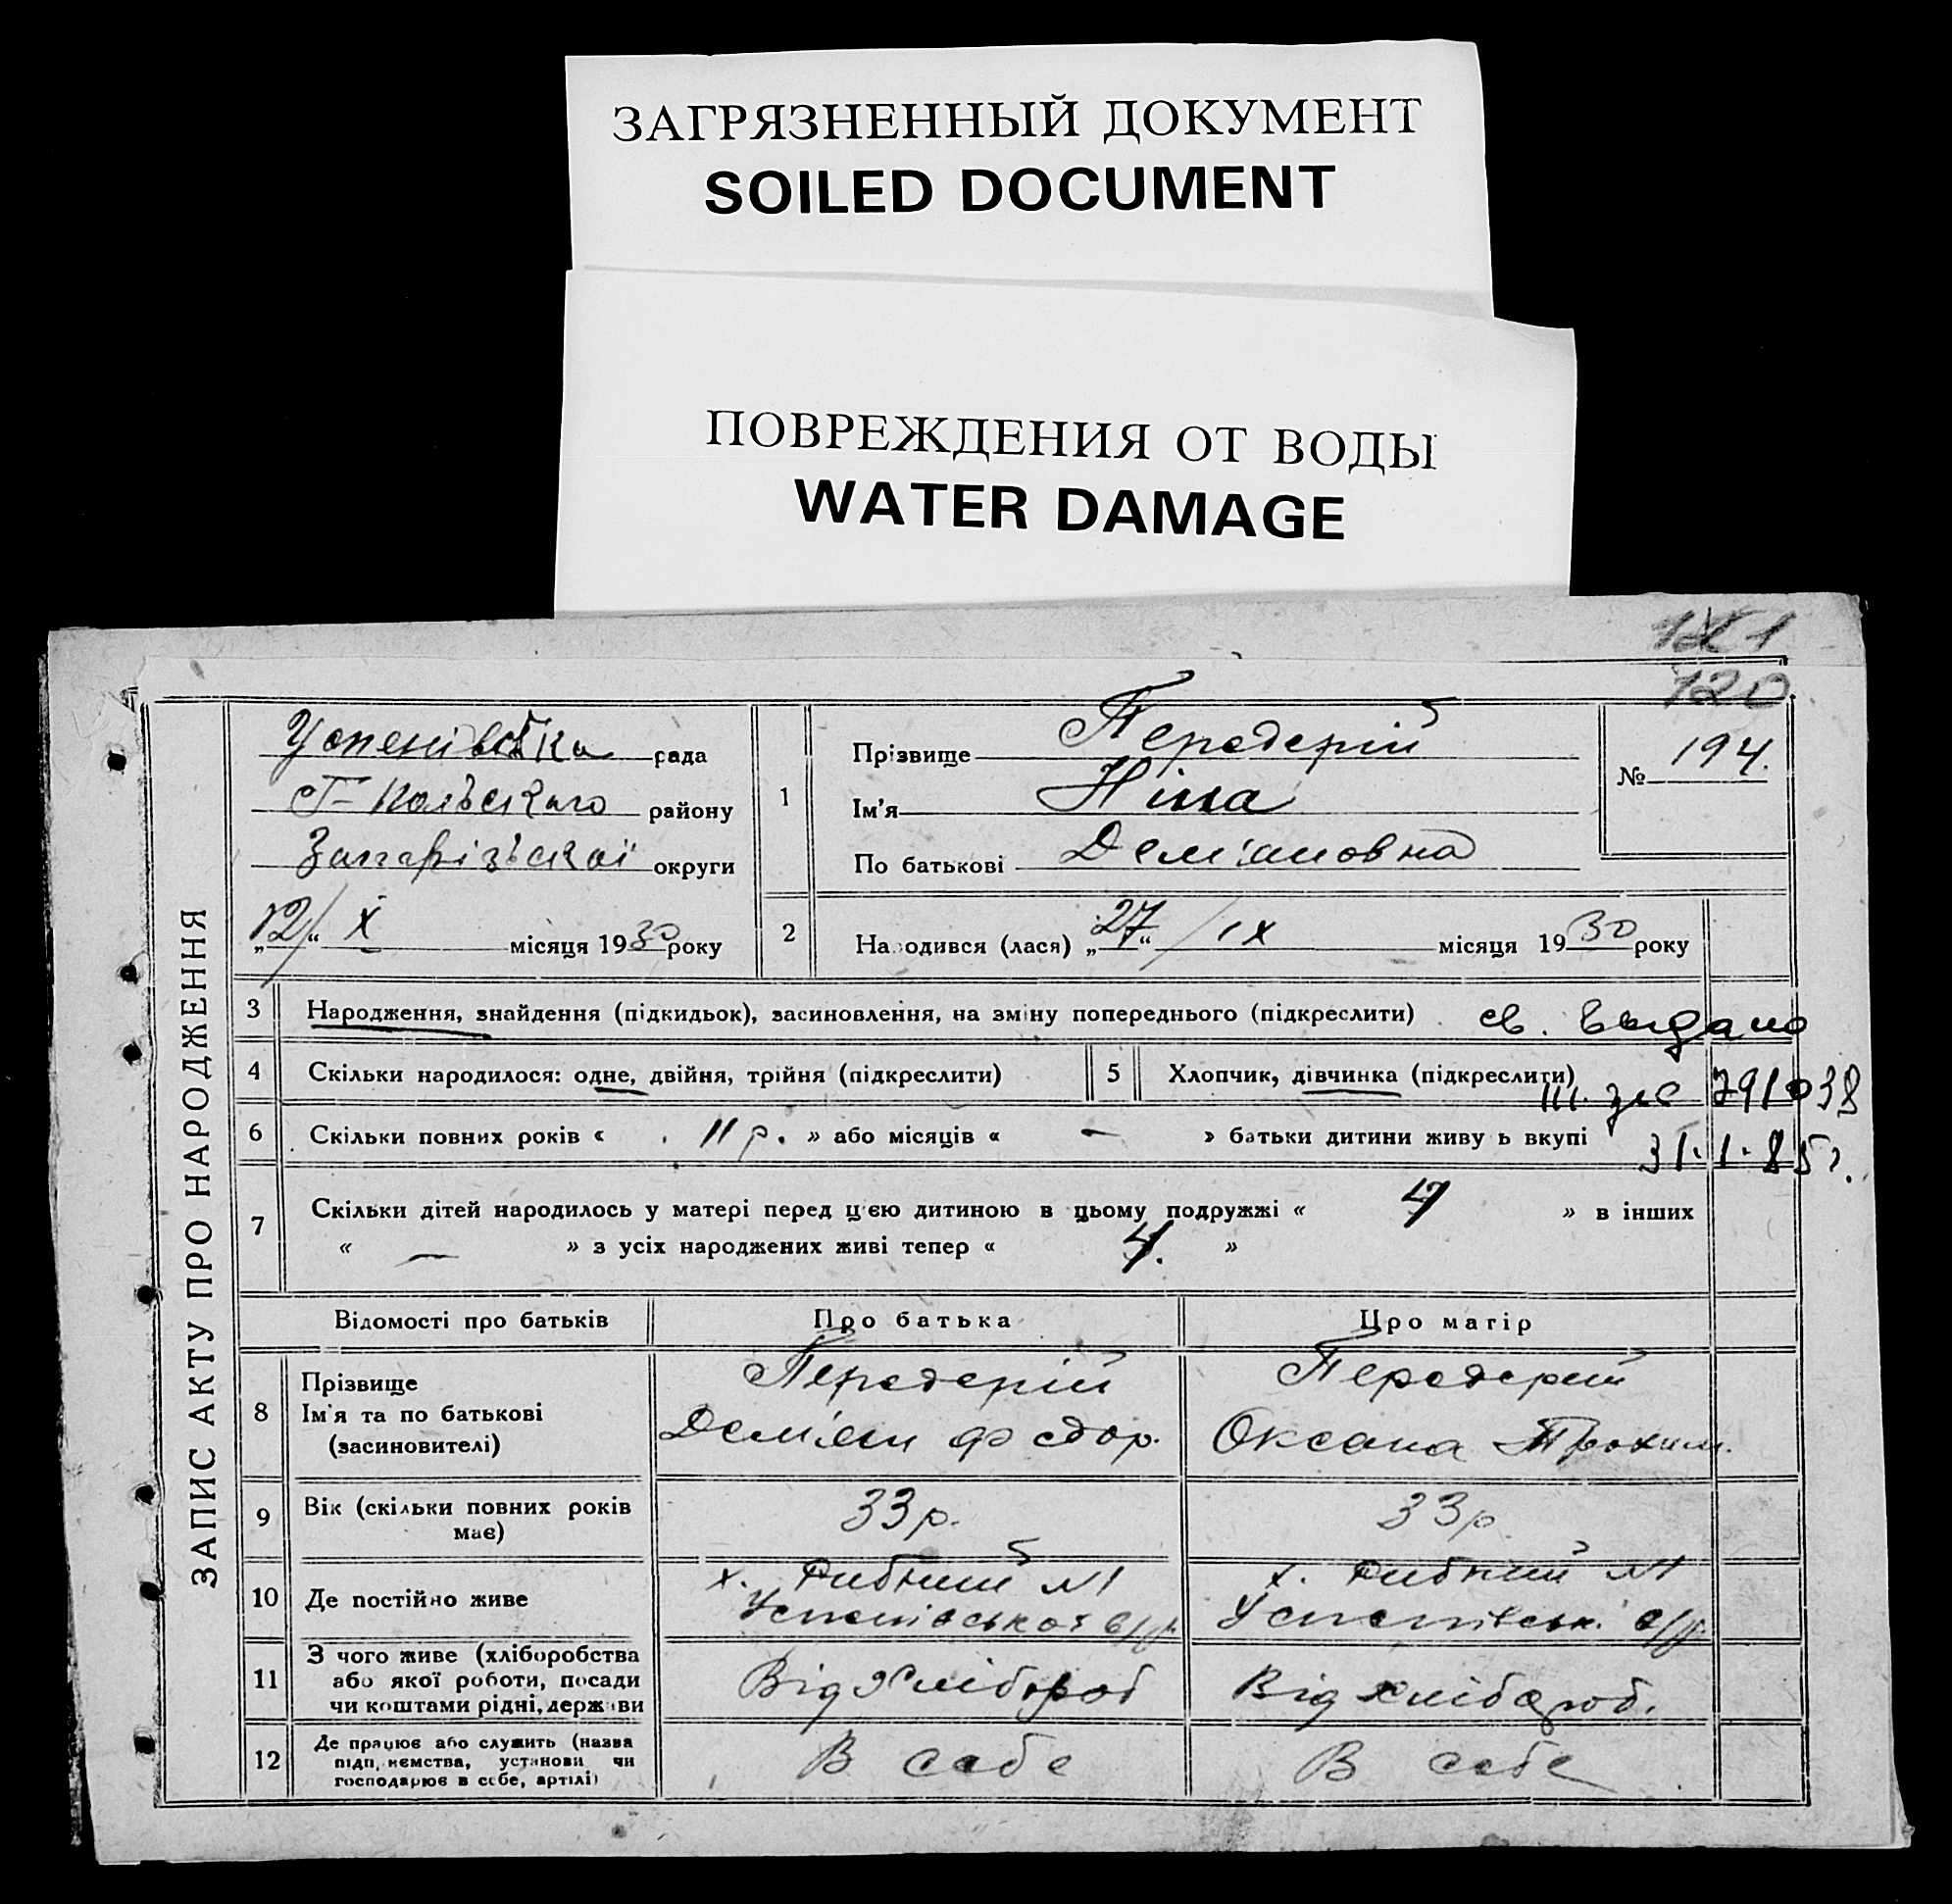 ЗАГРЯЗНЕННЫЙ ДОКУМЕНТ
SOILED DOCUMENT
ПОВРЕЖДЕНИЯ ОТ ВОДЫ
WATER DAMAGE
121
120
ЗАПИС АКТУ ПРО НАРОДЖЕННЯ
Успенівська рада
району
Запорізської округи
„12“ X місяця 1930 року
1
Прізвище Передерій
Ім'я Ніна
По батькові Дем'яновна
№ 194.
2 Народився (лася) „27“ / IX місяця 1930 року
3 Народження, знайдення (підкидьок), засиновлення, на зміну попереднього (підкреслити) св. выдано
4 Скільки народилося: одне, двійня, трійня (підкреслити)
5 Хлопчик, дівчинка (підкреслити)
III 791038
31.1.85г.
6 Скільки повних років « 11 р. » або місяців « — » батьки дитини живуть вкупі
7 Скільки дітей народилось у матері перед цією дитиною в цьому подружжі « 4 » в інших
« — » з усіх народжених живі тепер « 4. »
Відомості про батьків Про батька Про матір
8 Прізвище
Ім'я та по батькові
(засиновителі)
Передерій
Дем'ян Федор.
Передерий
Оксана Трохим.
9 Вік (скільки повних років має) 33 р. 33 р
10 Де постійно живе
х. Рибний №1
Успенівської с/р.
х. Рибний №1
Успенівськ. с/р.
11 З чого живе (хліборобства
або якої роботи, посади
чи коштами рідні, держави
Від хлібороб
Від хлібороб.
12 Де працює або служить (назва
підприємства, установи чи
господарює в себе, артілі)
В себе
В себе